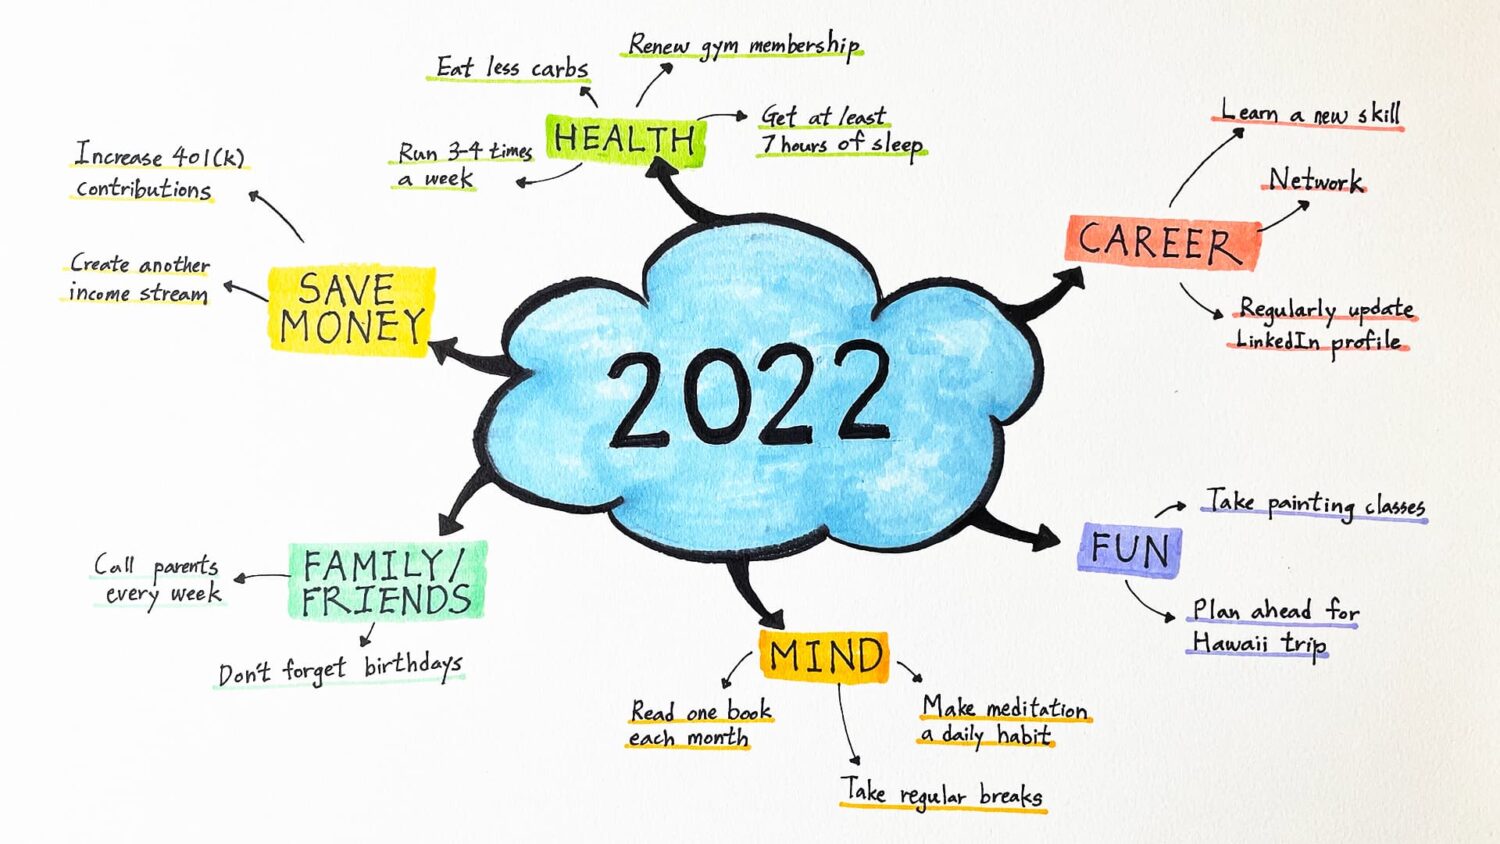 2022
HEALTH
Eat less carbs
Renew gym membership
Get at least
7 hours of sleep
Run 3-4 times
a week
CAREER
Learn a new skill
Network
Regularly update
LinkedIn profile
FUN
Take painting classes
Plan ahead for
Hawaii trip
MIND
Make meditation
a daily habit
Take regular breaks
Read one book
each month
FAMILY/
FRIENDS
Don't forget birthdays
Call parents
every week
SAVE
MONEY
Create another
income stream
Increase 401(k)
contributions